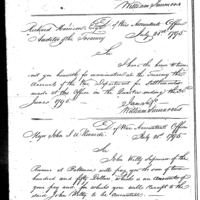 William Simmons
Richard Harrison Esqr of War Accountants Office
Auditor of the Treasury July 25th 1795
Sir
I have the honor to trans
mit you herewith for examination at the Treasury the
Accounts of the War Department for settlements
made at this Office in the Quarter ending the 30th
June 1795. I am Sir
William Simmons
of War Accountants Office
July 1795
Sir
John Kelty Supervisor of the
Revenue at Baltimore will pay you the sum of two
hundred and fifty Dollars, which is on account of
your pay and for which you will Receipt to the
said John Kelty to be